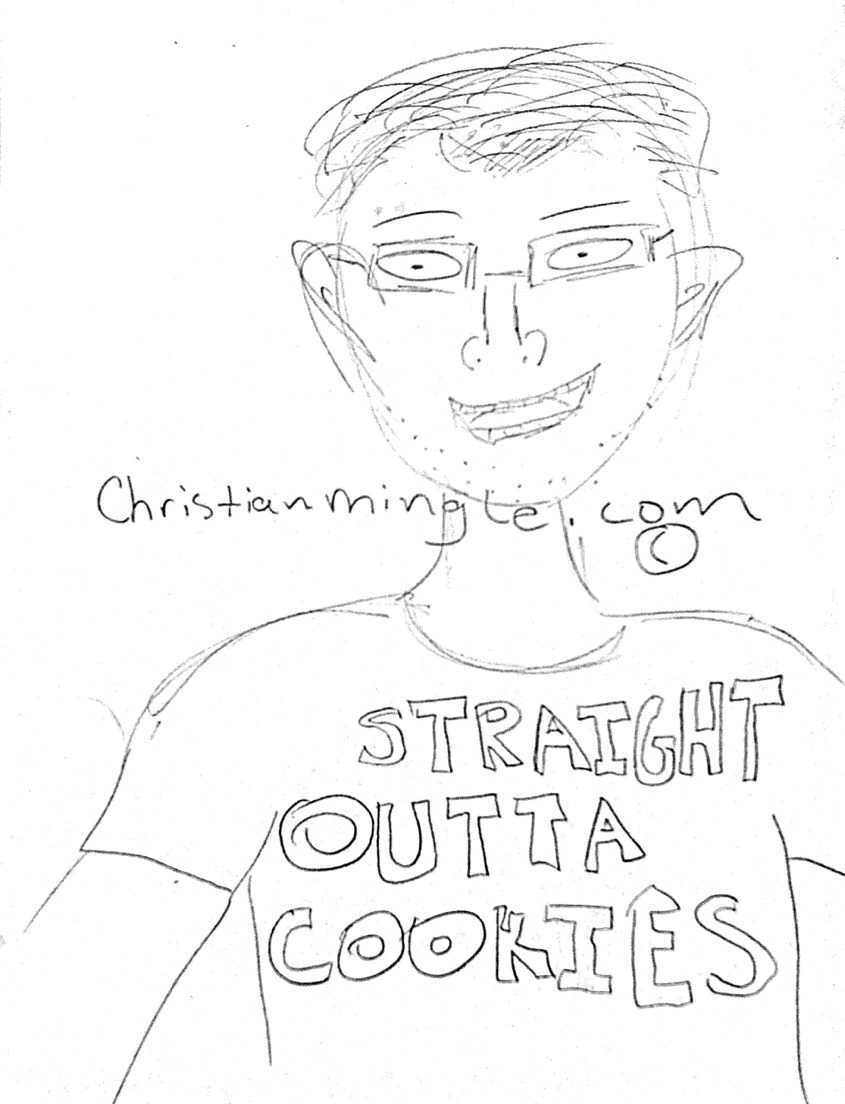 Christianmingle.com
©
STRAIGHT
OUTTA
COOKIES